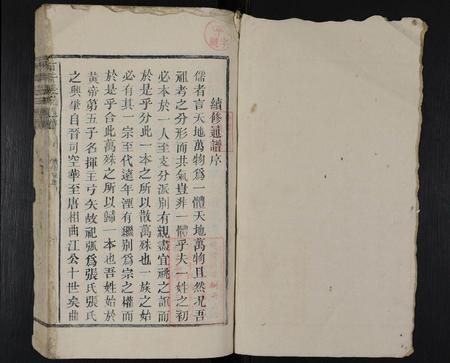 續修通譜序
儒者言天地萬物爲一體天地萬物且然况吾
祖考之分形而共氣豈非一體乎夫一姓之初
必本於一人至支分派別有親盡宜祧之訓而
於是乎分此一本之所以散萬殊也一族之始
必有其一宗至代遠年湮有繼別爲宗之權而
於是乎合此萬殊之所以歸一本也吾姓始於
黃帝第五子名揮王弓矢故祀張爲張氏張氏
之興肇自晉司空華至唐相曲江公十世矣曲